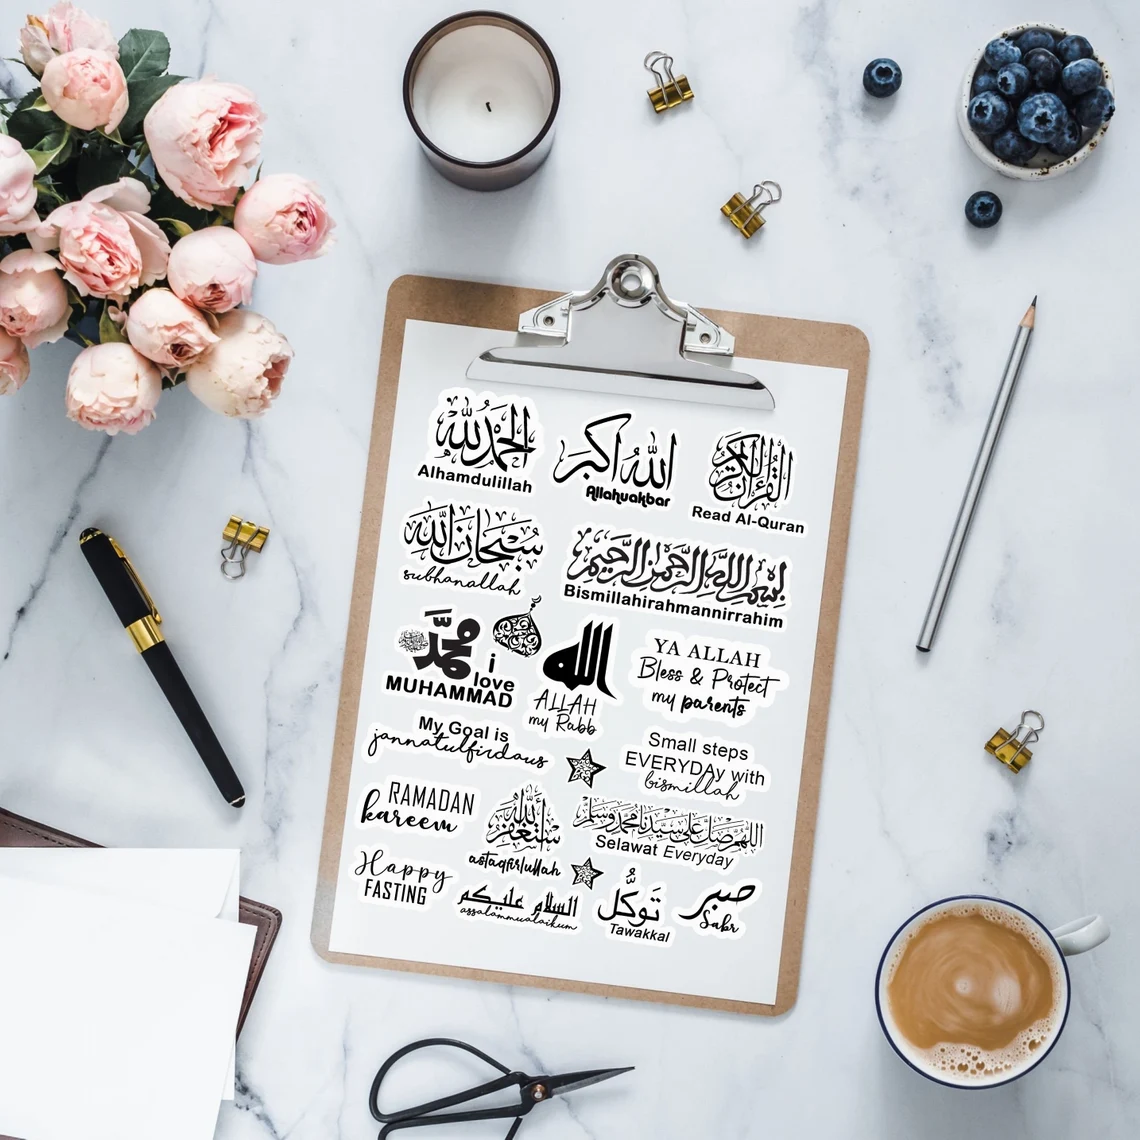 الحمد لله
Alhamdulillah
الله اكبر
Allahuakbar
القرآن الكريم
Read Al-Quran
سبحان الله
subhanallah
بسم الله الرحمن الرحيم
Bismillahirahmannirrahim
محمد
i
love
MUHAMMAD
الله
ALLAH
my Rabb
YA ALLAH
Bless & Protect
my parents
My Goal is
jannatulfirdaus
Small steps
EVERYDAy with
bismillah
RAMADAN
kareem
أستغفر الله
astaqfirlullah
اللهم صل على سيدنا محمد وسلم
Selawat Everyday
Happy
FASTING
السلام عليكم
assalammualaikum
تَوَكُّل
Tawakkal
صبر
Sabr